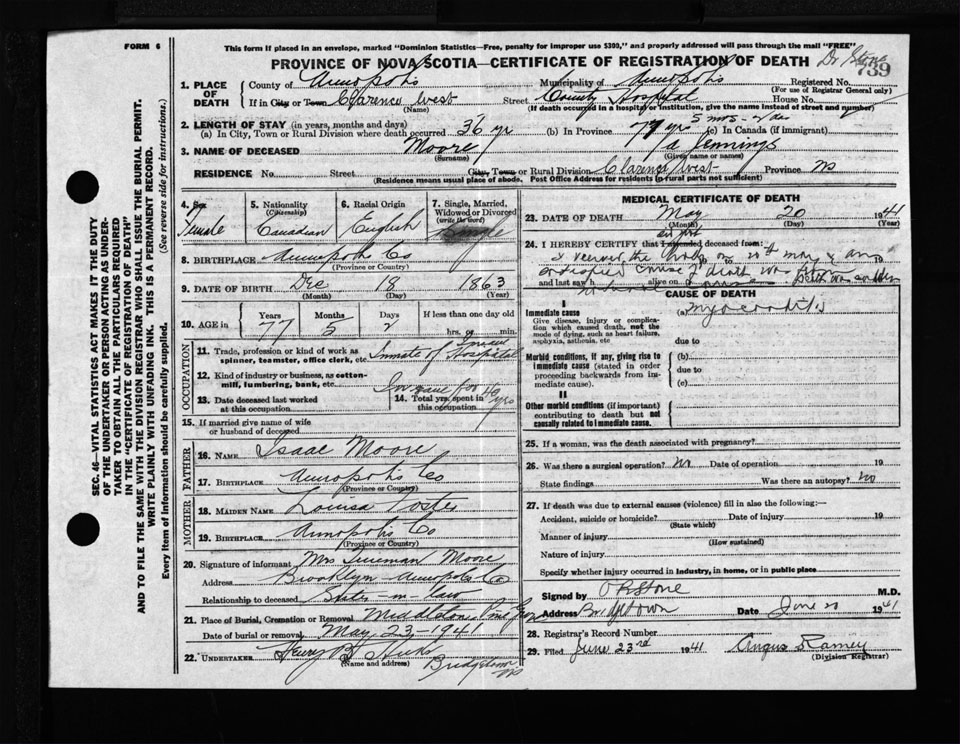 FORM 6
This form if placed in an envelope, marked "Dominion Statistics—Free, penalty for improper use $300," and properly addressed will pass through the mail "FREE"
PROVINCE OF NOVA SCOTIA—CERTIFICATE OF REGISTRATION OF DEATH
739
1. PLACE OF DEATH
County of Annapolis Municipality of Annapolis Registered No.
(For use of Registrar General only)
If in City or Town Clarence West Street County Hospital House No.
(Name) (If death occurred in a hospital or institution, give the name instead of street and number)
2. LENGTH OF STAY (in years, months and days) 5 mos - 2 des
(a) In City, Town or Rural Division where death occurred 36 yr (b) In Province 77 yrs (c) In Canada (if immigrant)
3. NAME OF DECEASED Moore Jennings
(Surname) (Given name or names)
RESIDENCE No. Street City, Town or Rural Division Clarence West Province NS
(Residence means usual place of abode. Post Office Address for residents in rural parts not sufficient)
4. Sex Female
5. Nationality (Citizenship) Canadian
6. Racial Origin English
7. Single, Married, Widowed or Divorced (write the word) Single
8. BIRTHPLACE Annapolis Co
(Province or Country)
9. DATE OF BIRTH Dec 18 1863
(Month) (Day) (Year)
10. AGE in Years Months Days If less than one day old
77 5 2 hrs. or min.
OCCUPATION
11. Trade, profession or kind of work as spinner, teamster, office clerk, etc. Inmate of Insane Hospital
12. Kind of industry or business, as cotton-mill, lumbering, bank, etc.
13. Date deceased last worked at this occupation
14. Total yrs. spent in this occupation
15. If married give name of wife or husband of deceased
FATHER
16. NAME Isaac Moore
17. BIRTHPLACE Annapolis Co
(Province or Country)
MOTHER
18. MAIDEN NAME Louisa Foster
19. BIRTHPLACE Annapolis Co
(Province or Country)
20. Signature of informant Mrs Freeman Moore
Address Brooklyn - Annapolis Co
Relationship to deceased Sister-in-law
21. Place of Burial, Cremation or Removal Middleton Pine Grove
Date of burial or removal May 23 - 1941
22. UNDERTAKER Henry B Hicks Bridgetown NS
(Name and address)
MEDICAL CERTIFICATE OF DEATH
23. DATE OF DEATH May 20 1941
(Month) (Day) (Year)
24. I HEREBY CERTIFY that I attended deceased from:
and last saw h alive on
CAUSE OF DEATH
I
Immediate cause
Give disease, injury or complication which caused death, not the mode of dying, such as heart failure, asphyxia, asthenia, etc
(a) Myocarditis
due to
Morbid conditions, if any, giving rise to immediate cause (stated in order proceeding backwards from immediate cause).
(b)
due to
(c)
II
Other morbid conditions (if important) contributing to death but not causally related to immediate cause.
25. If a woman, was the death associated with pregnancy?
26. Was there a surgical operation? no Date of operation 19
State findings Was there an autopsy? no
27. If death was due to external causes (violence) fill in also the following:—
Accident, suicide or homicide? Date of injury 19
(State which)
Manner of injury
(How sustained)
Nature of injury
Specify whether injury occurred in industry, in home, or in public place
Signed by M.D.
Address Bridgetown Date June 20 1941
28. Registrar's Record Number
29. Filed June 23rd 1941 Angus Ramey
(Division Registrar)
SEC. 46—VITAL STATISTICS ACT MAKES IT THE DUTY
OF THE UNDERTAKER OR PERSON ACTING AS UNDER-
TAKER TO OBTAIN ALL THE PARTICULARS REQUIRED
IN THE "CERTIFICATE OF REGISTRATION OF DEATH"
AND TO FILE THE SAME WITH THE DIVISION REGISTRAR WHO SHALL ISSUE THE BURIAL PERMIT.
WRITE PLAINLY WITH UNFADING INK. THIS IS A PERMANENT RECORD.
Every item of information should be carefully supplied. (See reverse side for instructions.)